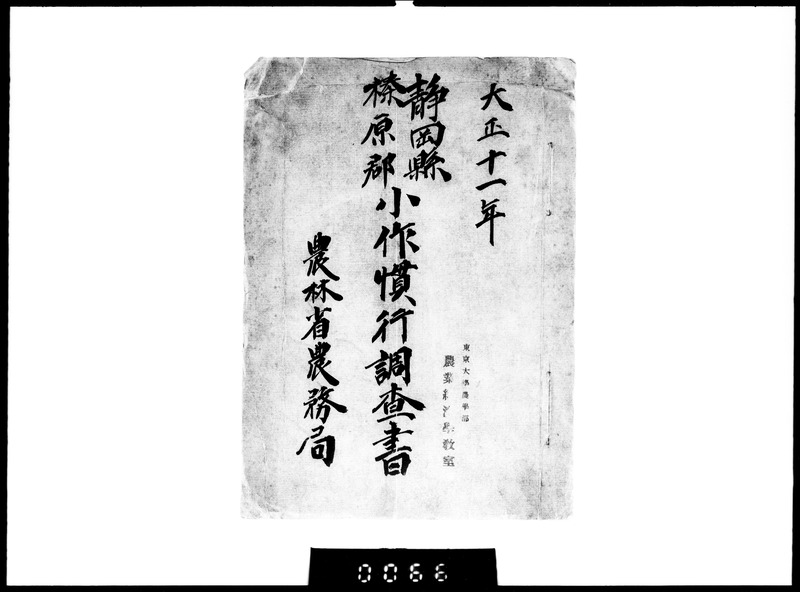 大正十一年
静岡縣
榛原郡
小作慣行調査書
東京大學農學部
農業経済学教室
農林省農務局
0066